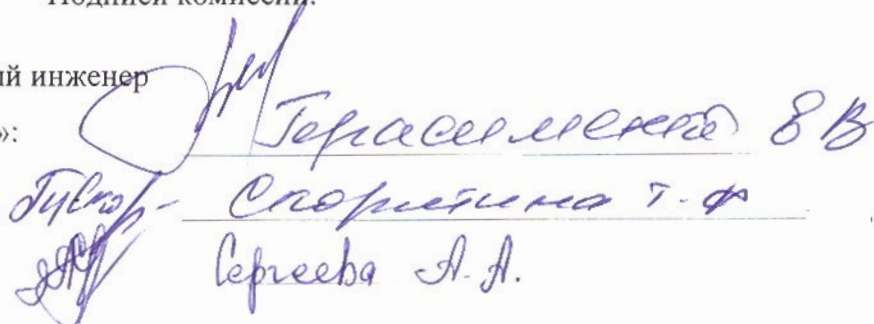 Подписи комиссии:
ий инженер
»: Герасименко Е В
Скорятина Т. Ф
Сергеева А. А.